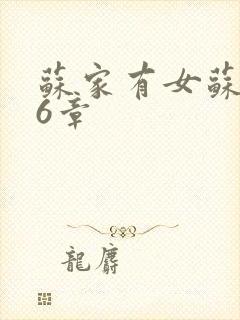 蘇家有女蘇
6章
龍麝